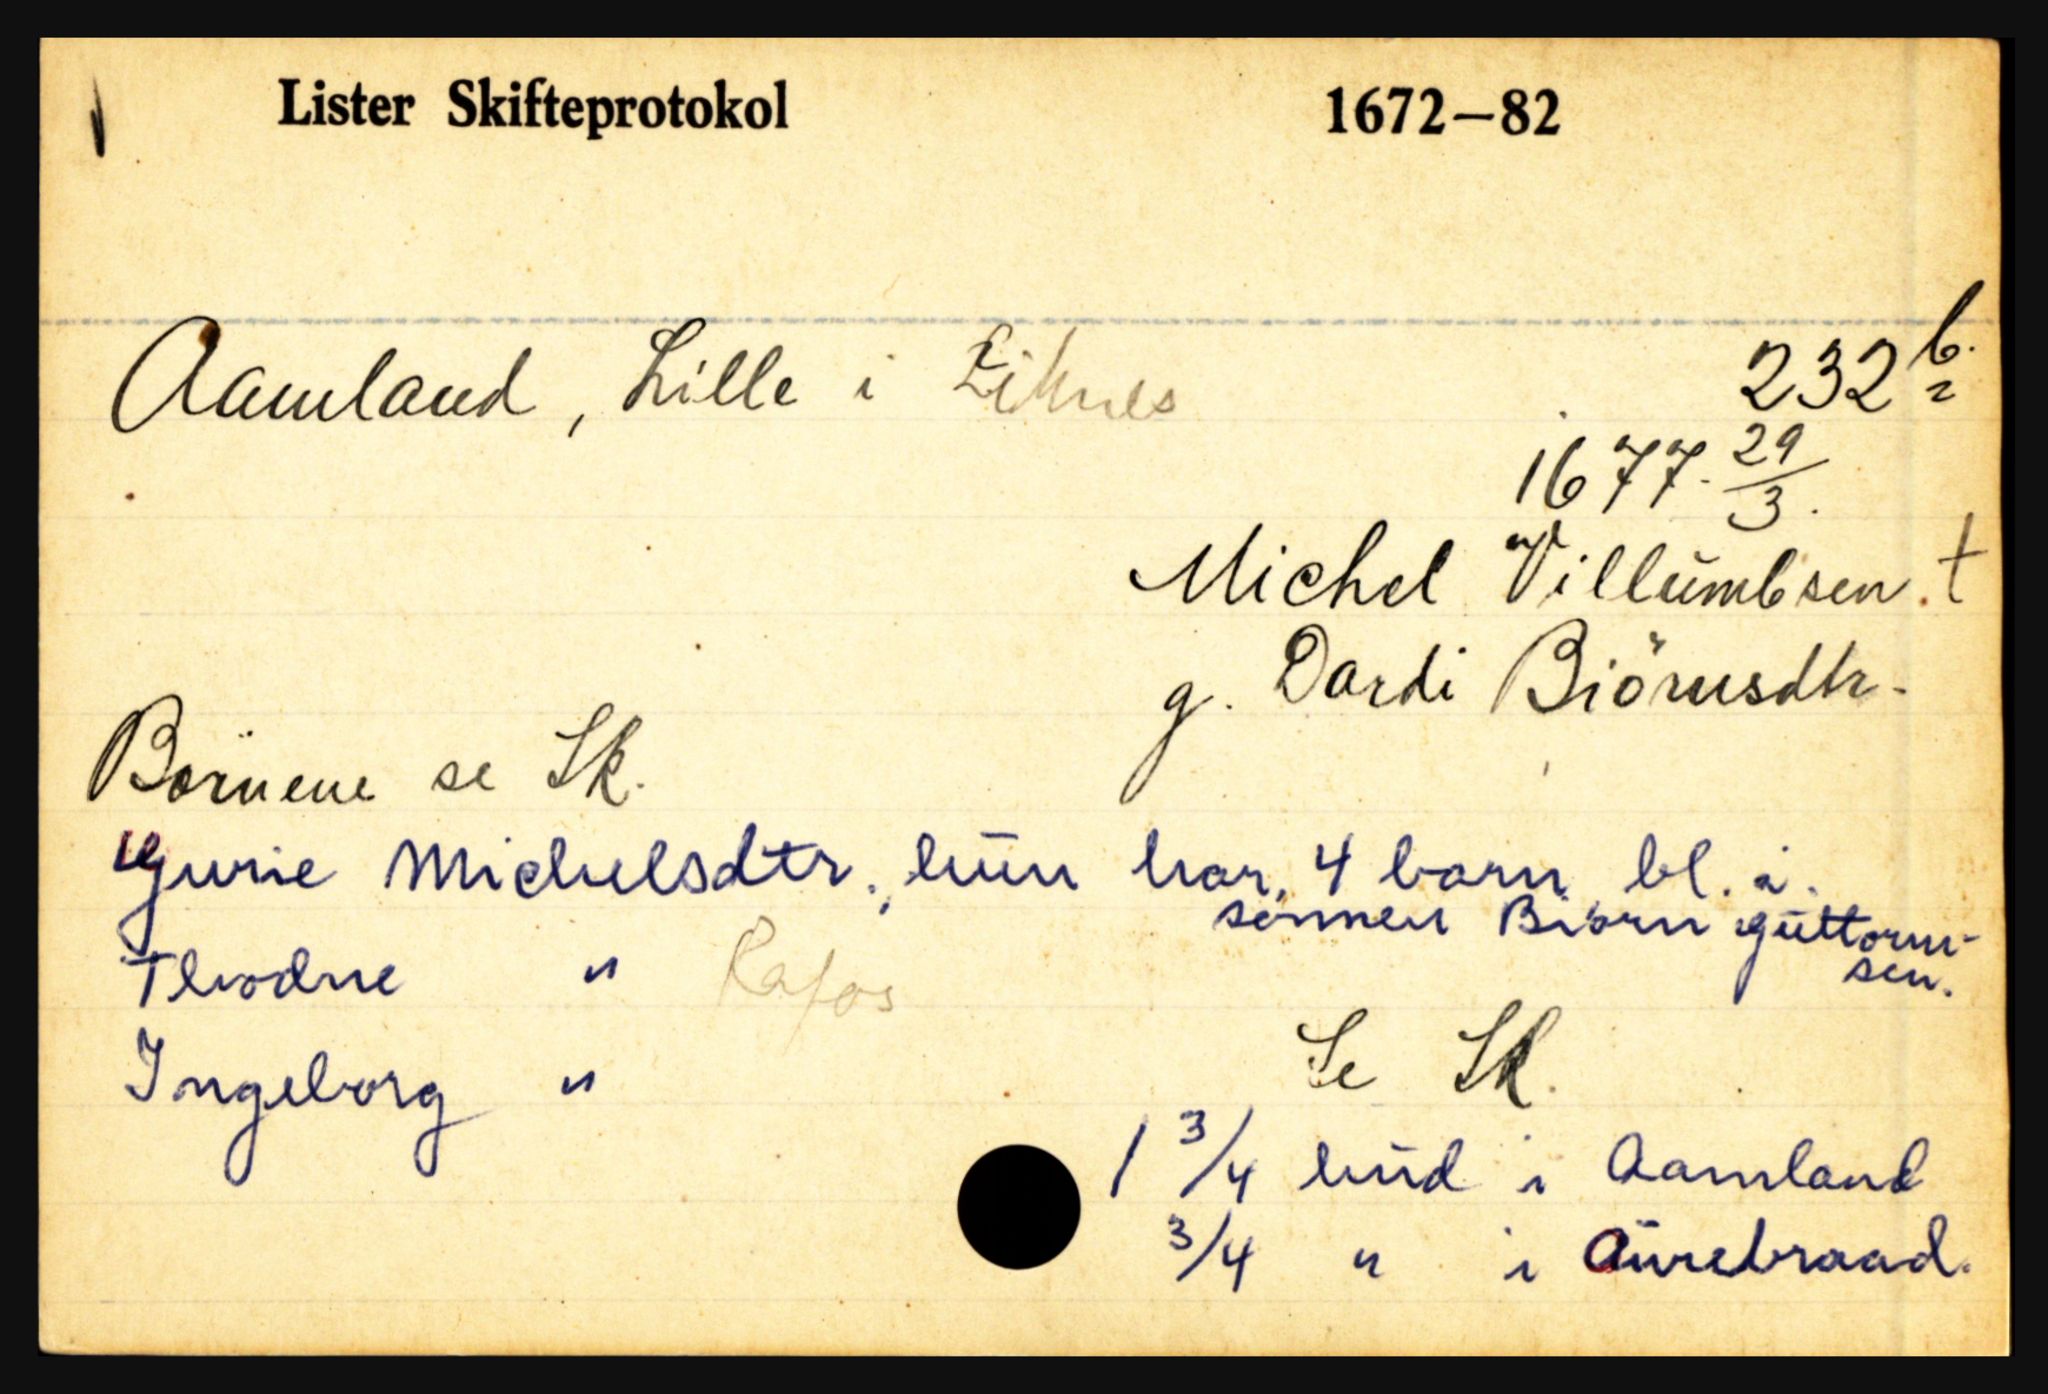 Lister Skifteprotokol 1672—82
Aamland, Lille i Eiknes 232 b.
1677. 29/3.
Michel Villumbsen. †
g. Dardi Biörnsdtr.
Börnene se Sk.
Gurie Michelsdtr., hun har 4 barn, bl. a.
sönnen Biörn Guttorm-
sen.
Thodne " Rafos
Ingeborg "
Se Sk.
1 3/4 hud i Aamland
3/4 " i Aurebraad.